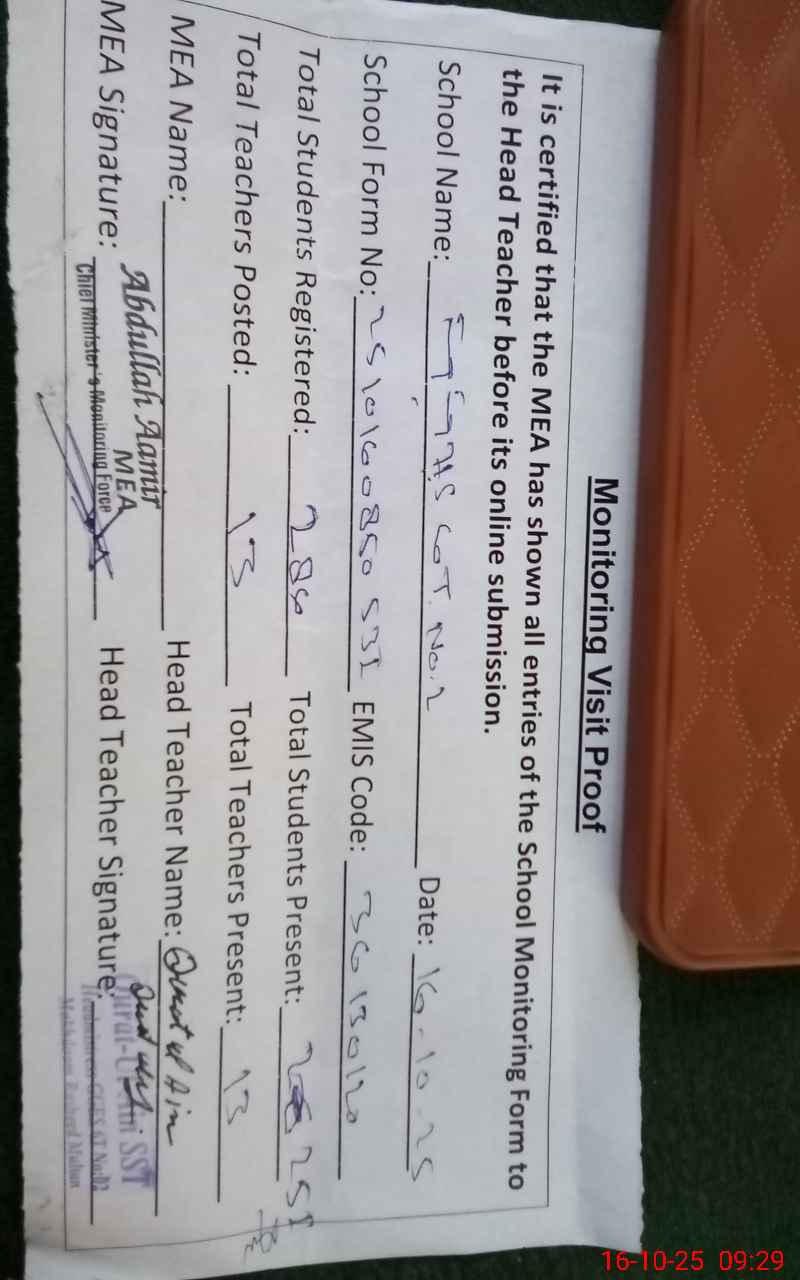 Monitoring Visit Proof
It is certified that the MEA has shown all entries of the School Monitoring Form to
the Head Teacher before its online submission.
School Name: No. 2 Date: 16-10-25
School Form No: EMIS Code: 36130120
Total Students Registered: 280 Total Students Present: 251
Total Teachers Posted: 13 Total Teachers Present: 13
MEA Name: Head Teacher Name: Qurat ul Ain
Abdullah Aamir
MEA
MEA Signature: Chief Minister's Monitoring Force Head Teacher Signature:
SST
16-10-25 09:29